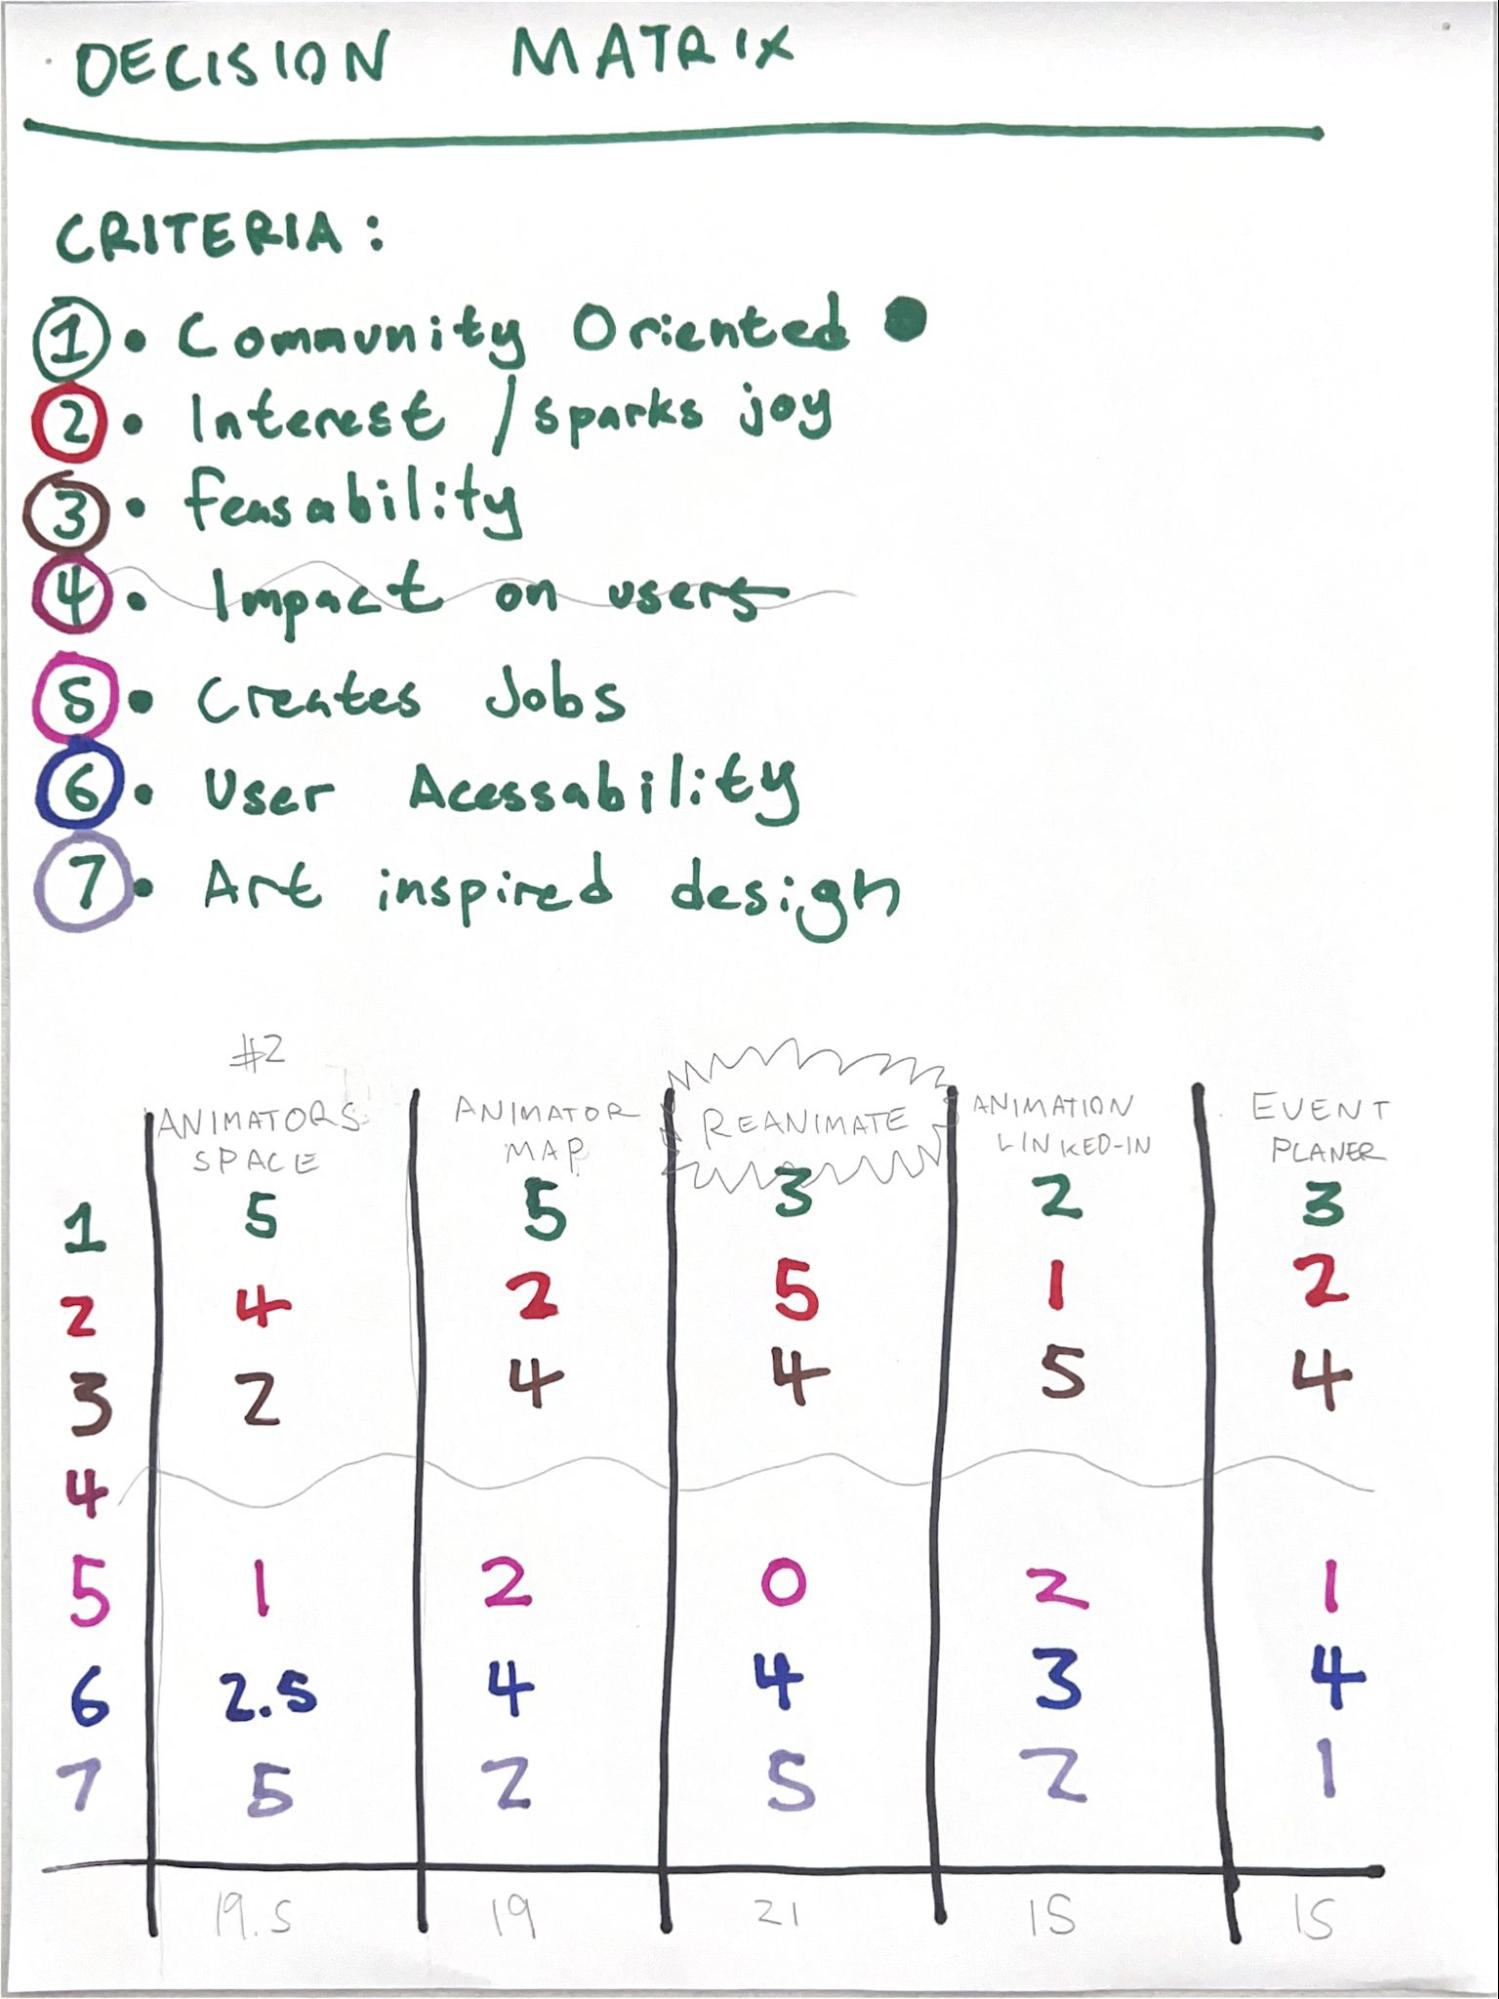 DECISION MATRIX
CRITERIA:
1 • Community Oriented
2 • Interest / sparks joy
3 • feasability
4 • Impact on users
5 • Creates Jobs
6 • User Acessability
7 • Art inspired design
#2
ANIMATORS SPACE ANIMATOR MAP REANIMATE ANIMATION LINKED-IN EVENT PLANER
1 5 5 3 2 3
2 4 2 5 1 2
3 2 4 4 5 4
4
5 1 2 0 2 1
6 2.5 4 4 3 4
7 5 2 5 2 1
19.5 19 21 15 15